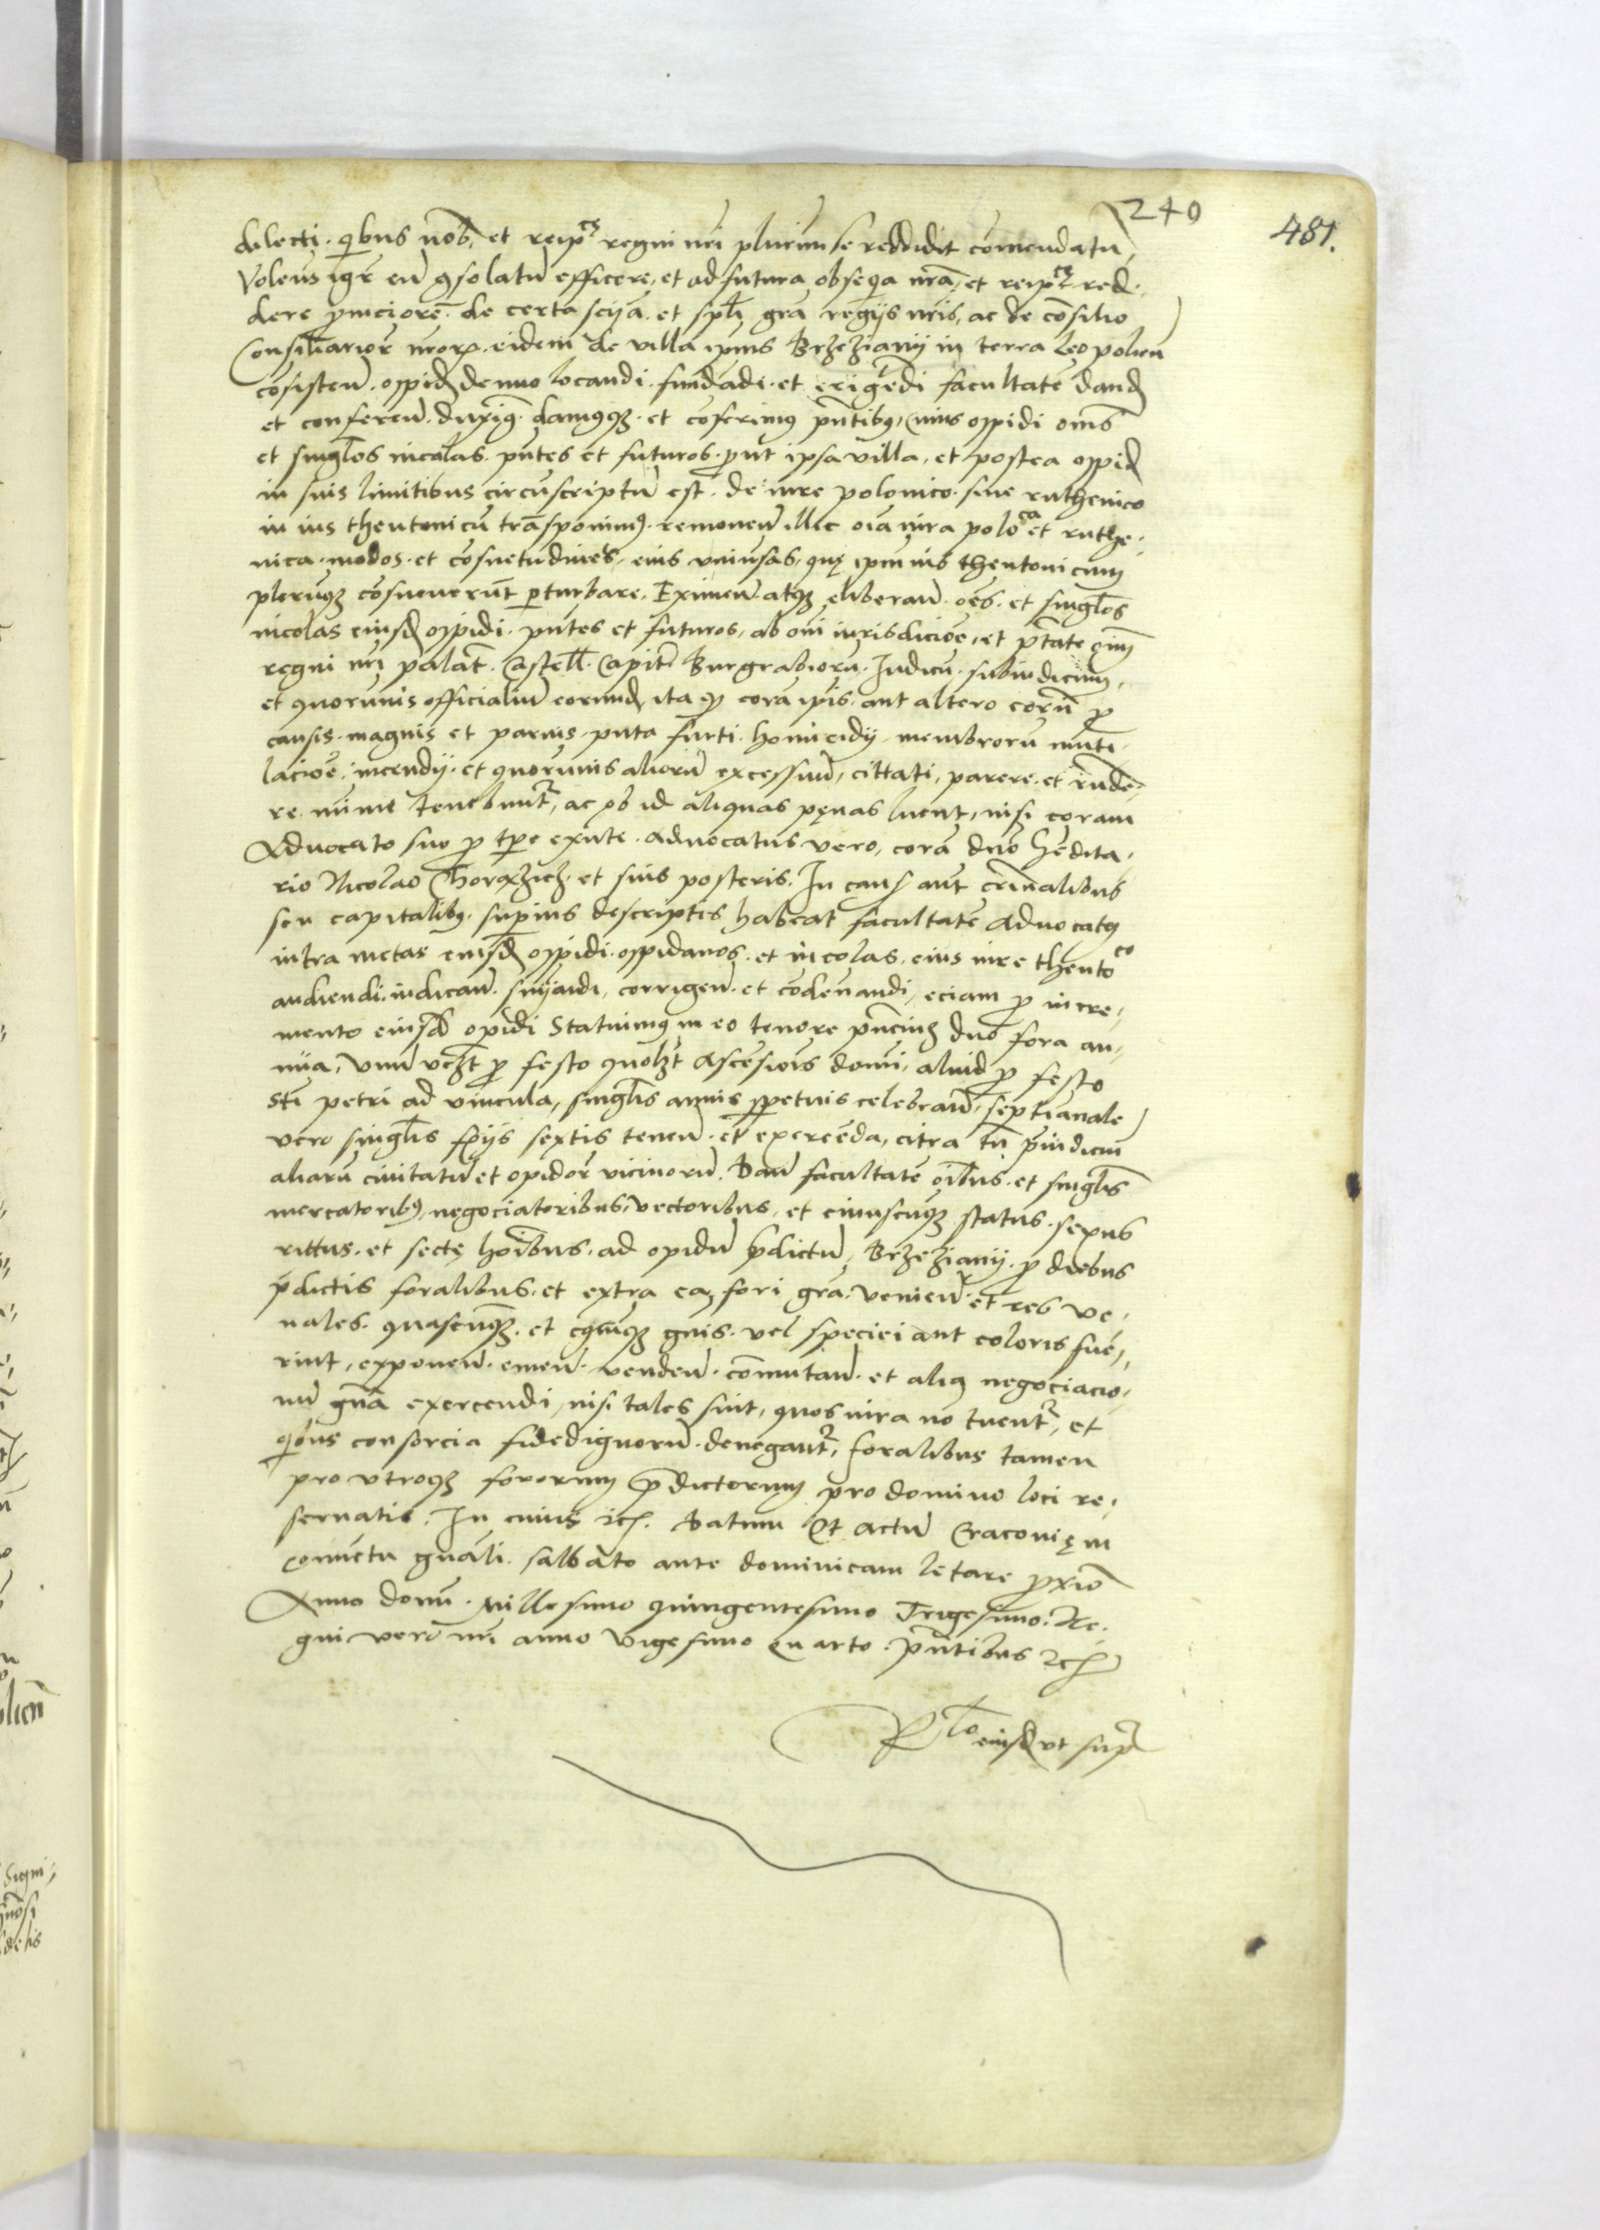 240
481.
dilecti. quibus nob. et reip. regni nri plurimu se reddidit comendatu,
Volens igr eu cosolatu efficere, et ad futura obsequia nra, et reip. red.
dere promciore. de certa scija. et spli gra regijs nris, ac de consilio
Consiliarior nror. eidem de villa ipius Brzeziany in terra Leopolien
cosisten. oppid denuo locandi. fundadi. et erigendi facultate dand
et conferen. duxim. damusq. et coferimus pntibus, cuius oppidi oms
et singlos incolas. pntes et futuros. prout ipsa villa, et postea oppid
in suis limitibus circuscriptu est. de iure polonico. siue ruthenico
in ius theutonicu trasponimus. remouen. illic oia iura poloca et ruthe.
nica. modos. et cosuetudines. eius vniusas. quę ipm ius theutonicum
plerumq cosueuerut pturbare. Eximen. atq liberan. oes. et singlos
incolas eiusd oppidi. pntes et futuros, ab oni iurisdicioe, et ptate oim
regni nri palat. Castell. Capit. Burgrabioru. Iudicu. subiudicum,
et quorumuis officialiu eorumd, ita q cora ipis. aut altero eoru p
causis. magnis et paruis. puta furti. homicidij. membroru muti.
lacioe. incendij. et quorumuis alioru excessuu, cittati, parere. et rnde,
re. nime tenebuntr, ac ob id aliquas pęnas luent, nisi coram
Aduocato suo p tpe exnte. aduocatus vero, cora dno hedita.
rio Nicolao et suis posteris. In caus aut criminalibus
seu capitalibus. superius descriptis habeat facultate Aduocatus
intra metas eiusd oppidi. oppidanos. et incolas. eius iure theutoco
audiendi. iudican. snijandi, corrigen. et codenandi, eciam p incre,
mento eiusd opidi Statuimus in eo tenore pncium duo fora an,
nua, Vnu p festo quolzt Ascesiois domi, aliud p festo
Sti petri ad vincula, singlis annis ppetuis celebran. septianale
vero singlis ferijs sextis tenen. et exerceda, citra tn piudiciu
aliaru ciuitatu et opidor vicinoru. Dan facultate oibus. et singlis
mercatoribus, negociatoribus, vectoribus, et ciuuscuq status. sexus
rittus. et sectę hoibus. ad opidu pdictu. Brzeziany. p diebus
pdictis foralibus. et extra ea, fori gra. venien. et res ve,
nales. quascunq. et cuiusq gnis. vel speciei aut coloris fue,
rint, exponen. emen. venden. commutan. et aliq negociacio,
nu gna exercendi, nisi tales sint, quos iura no tuentr, et
quibus consorcia fidedignoru. denegantr, foralibus tamen
pro vtroq fororum predictorum pro domino loci re,
seruatis. In cuius rei. Datum Et actu Cracovię in
conuentu gnali. sabbato ante dominicam letare proximo
Anno domi. Millesimo quingentesimo Trigesimo. Re.
gni vero nri anno Vigesimo quarto. pntibus
Rlo eiusd vt supra